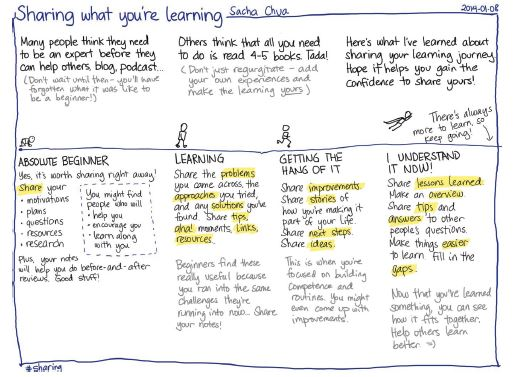 Sharing what you're learning Sacha Chua
2014-01-08
Many people think they need
to be an expert before they
can help others, blog, podcast...
(Don't wait until then - you'll have
forgotten what it was like to
be a beginner!)
Others think that all you need
to do is read 4-5 books. Tada!
(Don't just regurgitate - add
your own experiences and
make the learning yours)
Here's what I've learned about
sharing your learning journey.
Hope it helps you gain the
confidence to share yours!
There's always
more to learn, so
keep going!
ABSOLUTE BEGINNER
Yes, it's worth sharing right away!
Share your
• motivations
• plans
• questions
• resources
• research
You might find
people who will
• help you
• encourage you
• learn along
with you
Plus, your notes
will help you do before-and-after
reviews. Good stuff!
LEARNING
Share the problems
you came across, the
approaches you tried,
and any solutions you've
found. Share tips,
aha! moments, links,
resources.
Beginners find these
really useful because
you ran into the same
challenges they're
running into now... Share
your notes!
GETTING THE
HANG OF IT
Share improvements.
Share stories of
how you're making it
part of your life.
Share next steps.
Share ideas.
This is when you're
focused on building
competence and
routines. You might
even come up with
improvements.
I UNDERSTAND
IT NOW!
Share lessons learned.
Make an overview.
Share tips and
answers to other
people's questions.
Make things easier
to learn. Fill in the
gaps.
Now that you've learned
something, you can see
how it fits together.
Help others learn
better =)
#sharing